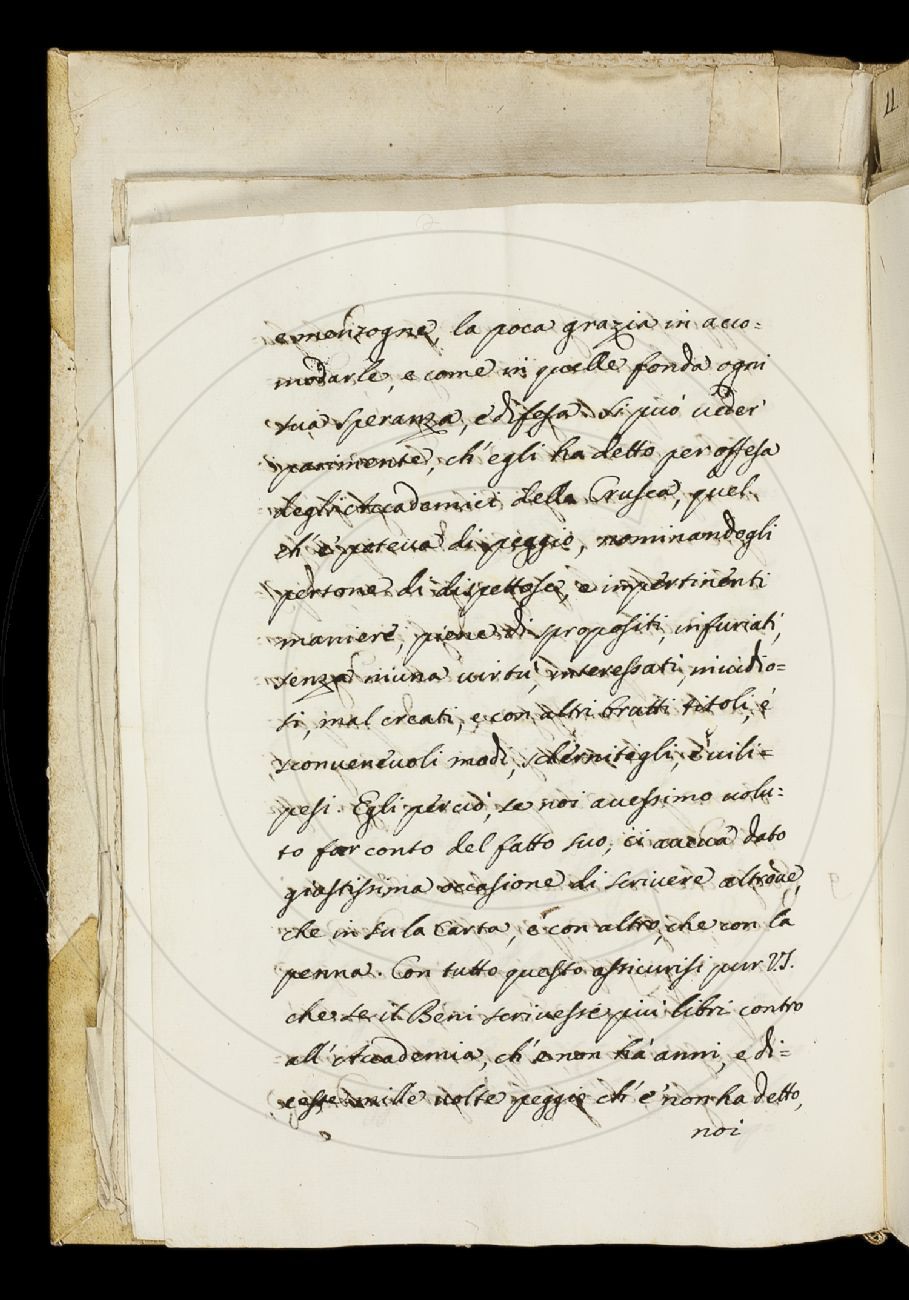 e menzogne, la poca grazia in acco=
modarle, e come in quelle fonda ogni
sua speranza, e difesa. Si può ueder
parimente, ch'egli ha detto per offesa
degli Accademici della Crusca, quel
ch'e' poteua di peggio, nominandogli
persone di dispettose, e impertinenti
maniere, piene di spropositi, infuriati,
senza niuna uirtù, interessati, inuidio=
si, mal creati, e con altri brutti titoli, e
sconueneuoli modi, schernitegli, e uili=
pesi. Egli perciò, se noi auessimo uolu=
to far conto del fatto suo, ci aueua dato
giustissima occasione di scriuere altroue,
che in su la Carta, e con altro, che con la
penna. Con tutto questo assicurisi pur V.S.
che se il Beni scriuesse più libri contro
all'Accademia, ch'e non ha anni, e di=
cesse mille uolte peggio ch'e' non ha detto,
noi
11.